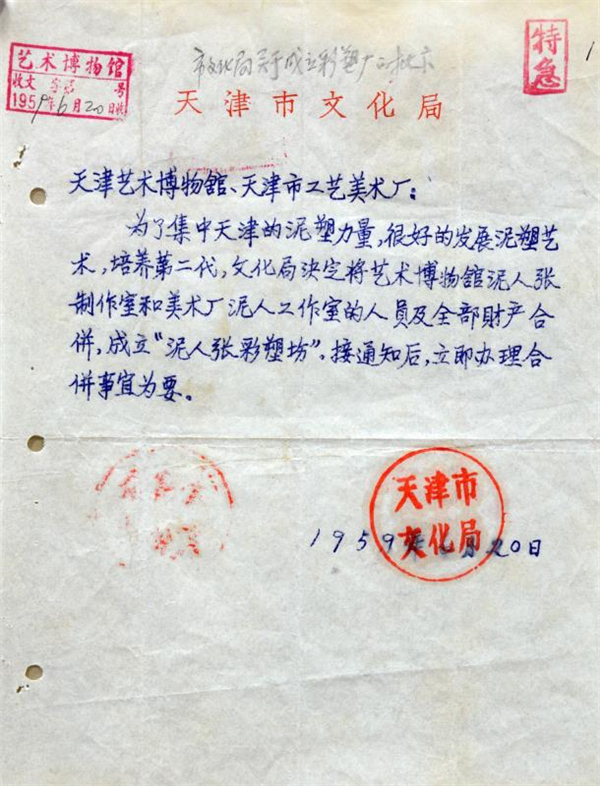 艺术博物馆
收文 字第 号
1959年6月20日收
特急
1
市文化局关于成立彩塑厂的批示
天津市文化局
天津艺术博物馆、天津市工艺美术厂:
为了集中天津的泥塑力量,很好的发展泥塑艺
术,培养第二代,文化局决定将艺术博物馆泥人张
制作室和美术厂泥人工作室的人员及全部財产合
併,成立“泥人张彩塑坊”。接通知后,立即办理合
併事宜为要。
天津市
文化局
1959年 月20日